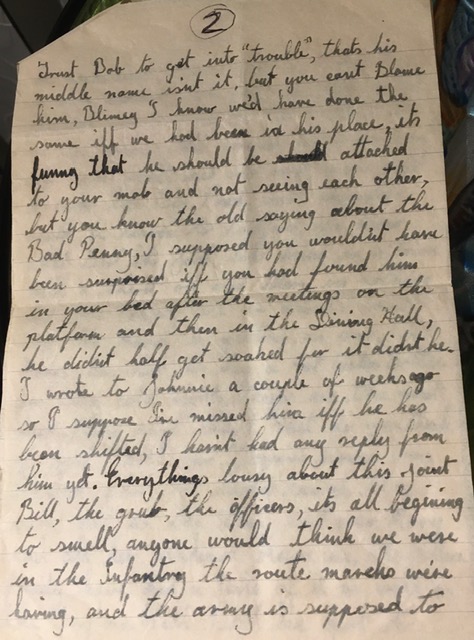 2
Trust Bob to get into "trouble", thats his
middle name isnt it, but you cant Blame
him, Blimey I know we'd have done the
same iff we had been in his place, its
funny that he should be attached
to your mob and not seeing each other,
but you know the old saying about the
Bad Penny, I supposed you wouldn't have
been surprised iff you had found him
in your bed after the meetings on the
platform and then in the Dining Hall,
he didn't half get soaked for it didnt he.
I wrote to Johnnie a couple of weeks ago
so I suppose I've missed him iff he has
been shifted, I havnt had any reply from
him yet. Everythings lousy about this joint
Bill, the grub, the officers, its all begining
to smell, anyone would think we were
in the Infantry the route marchs we're
having, and the army is supposed to